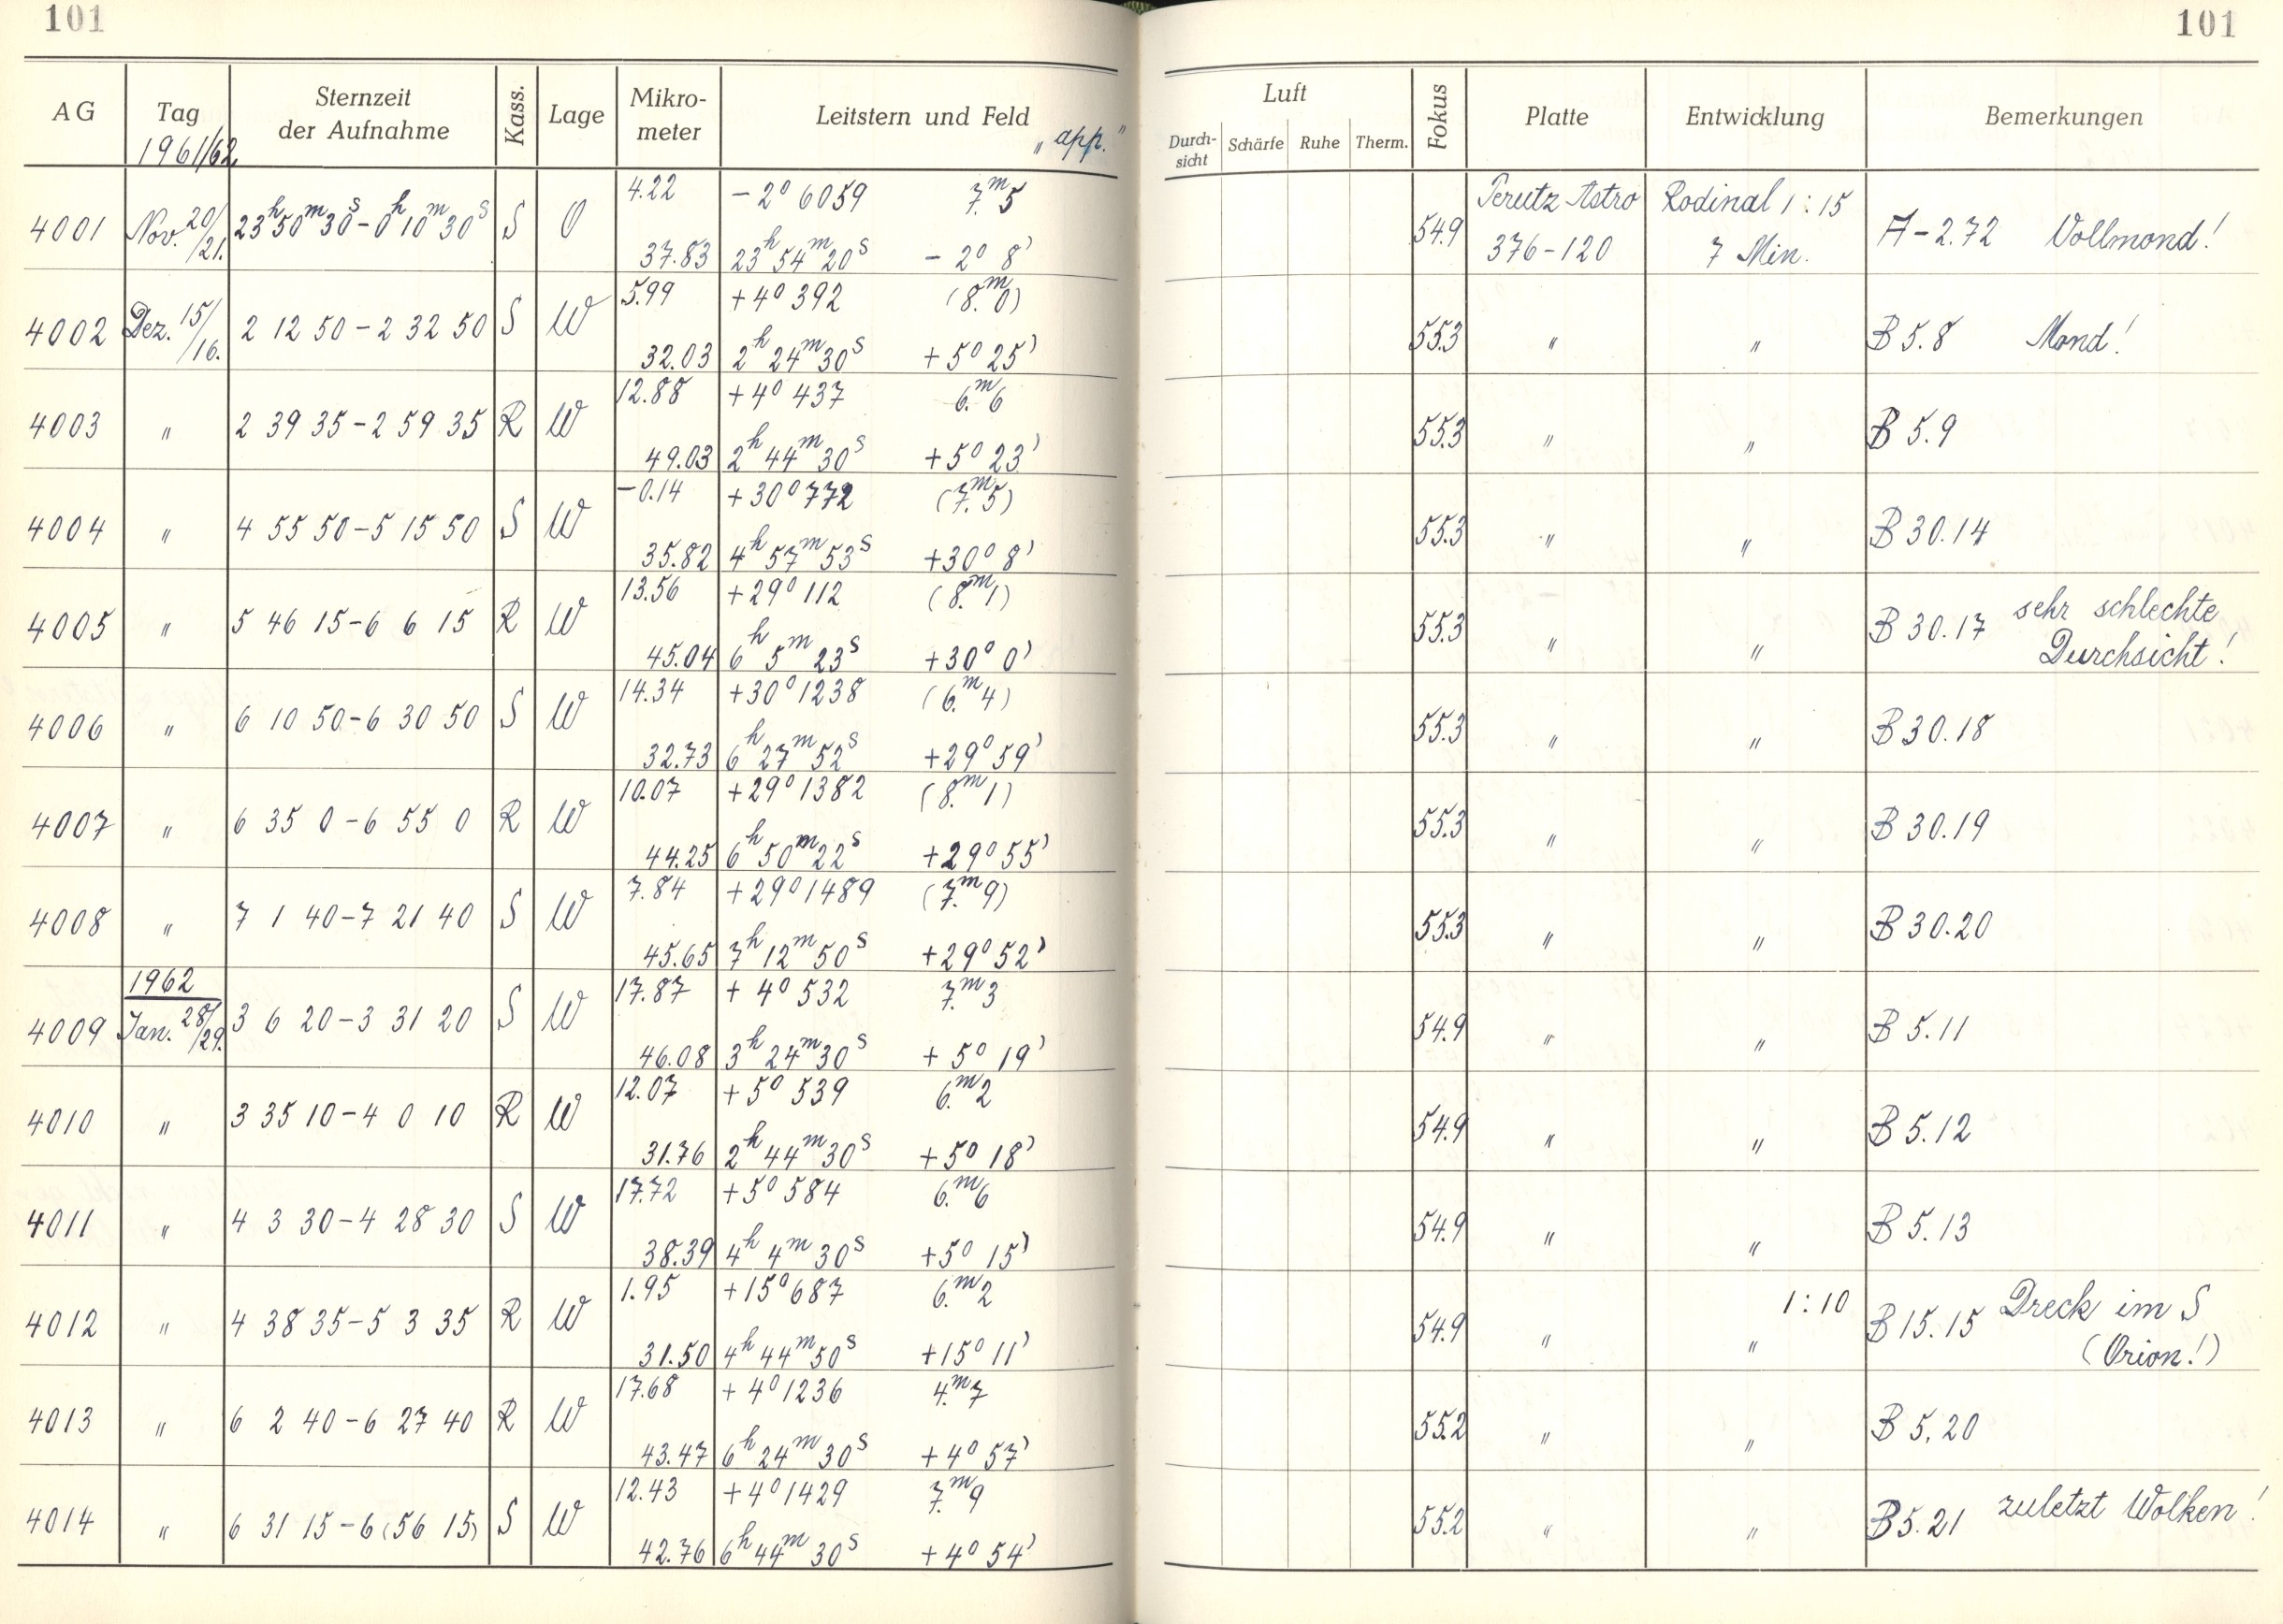 101
101
AG Tag Sternzeit der Aufnahme Kass. Lage Mikro-meter Leitstern und Feld Luft Fokus Platte Entwicklung Bemerkungen
1961/62 „app.“ Durch-sicht Schärfe Ruhe Therm.
4.22 − 2° 6059 7.m5 Perutz Astro Rodinal 1:15
4001 Nov. 20/21. 23h50m30s − 0h10m30s S O 54.9 A −2.72 Vollmond!
37.83 23h 54m 20s − 2° 8' 376-120 7 Min.
5.99 +4° 392 (8.m0)
4002 Dez. 15/16. 2 12 50 − 2 32 50 S W 55.3 " " B 5.8 Mond!
32.03 2h 24m 30s +5° 25'
12.88 +4° 437 6.m6
4003 " 2 39 35 − 2 59 35 R W 55.3 " " B 5.9
49.03 2h 44m 30s +5° 23'
−0.14 +30° 772 (7.m5)
4004 " 4 55 50 − 5 15 50 S W 55.3 " " B 30.14
35.82 4h 57m 53s +30° 8'
13.56 +29° 112 (8.m1) sehr schlechte
4005 " 5 46 15 − 6 6 15 R W 55.3 " " B 30.17
45.04 6h 5m 23s +30° 0' Durchsicht!
14.34 +30° 1238 (6.m4)
4006 " 6 10 50 − 6 30 50 S W 55.3 " " B 30.18
32.73 6h 27m 52s +29° 59'
10.07 +29° 1382 (8.m1)
4007 " 6 35 0 − 6 55 0 R W 55.3 " " B 30.19
44.25 6h 50m 22s +29° 55'
7.84 +29° 1489 (7.m9)
4008 " 7 1 40 − 7 21 40 S W 55.3 " " B 30.20
45.65 7h 12m 50s +29° 52'
1962 17.87 + 4° 532 7.m3
4009 Jan. 28/29. 3 6 20 − 3 31 20 S W 54.9 " " B 5.11
46.08 3h 24m 30s + 5° 19'
12.07 +5° 539 6.m2
4010 " 3 35 10 − 4 0 10 R W 54.9 " " B 5.12
31.76 2h 44m 30s +5° 18'
17.72 +5° 584 6.m6
4011 " 4 3 30 − 4 28 30 S W 54.9 " " B 5.13
38.39 4h 4m 30s +5° 15'
1.95 +15° 687 6.m2 1:10 Dreck im S
4012 " 4 38 35 − 5 3 35 R W 54.9 " " B 15.15
31.50 4h 44m 50s +15° 11' (Orion!)
17.68 + 4° 1236 4.m7
4013 " 6 2 40 − 6 27 40 R W 55.2 " " B 5.20
43.47 6h 24m 30s + 4° 57'
12.43 +4° 1429 7.m9 zuletzt Wolken!
4014 " 6 31 15 − 6 (56 15) S W 55.2 " " B 5.21
42.76 6h 44m 30s + 4° 54'